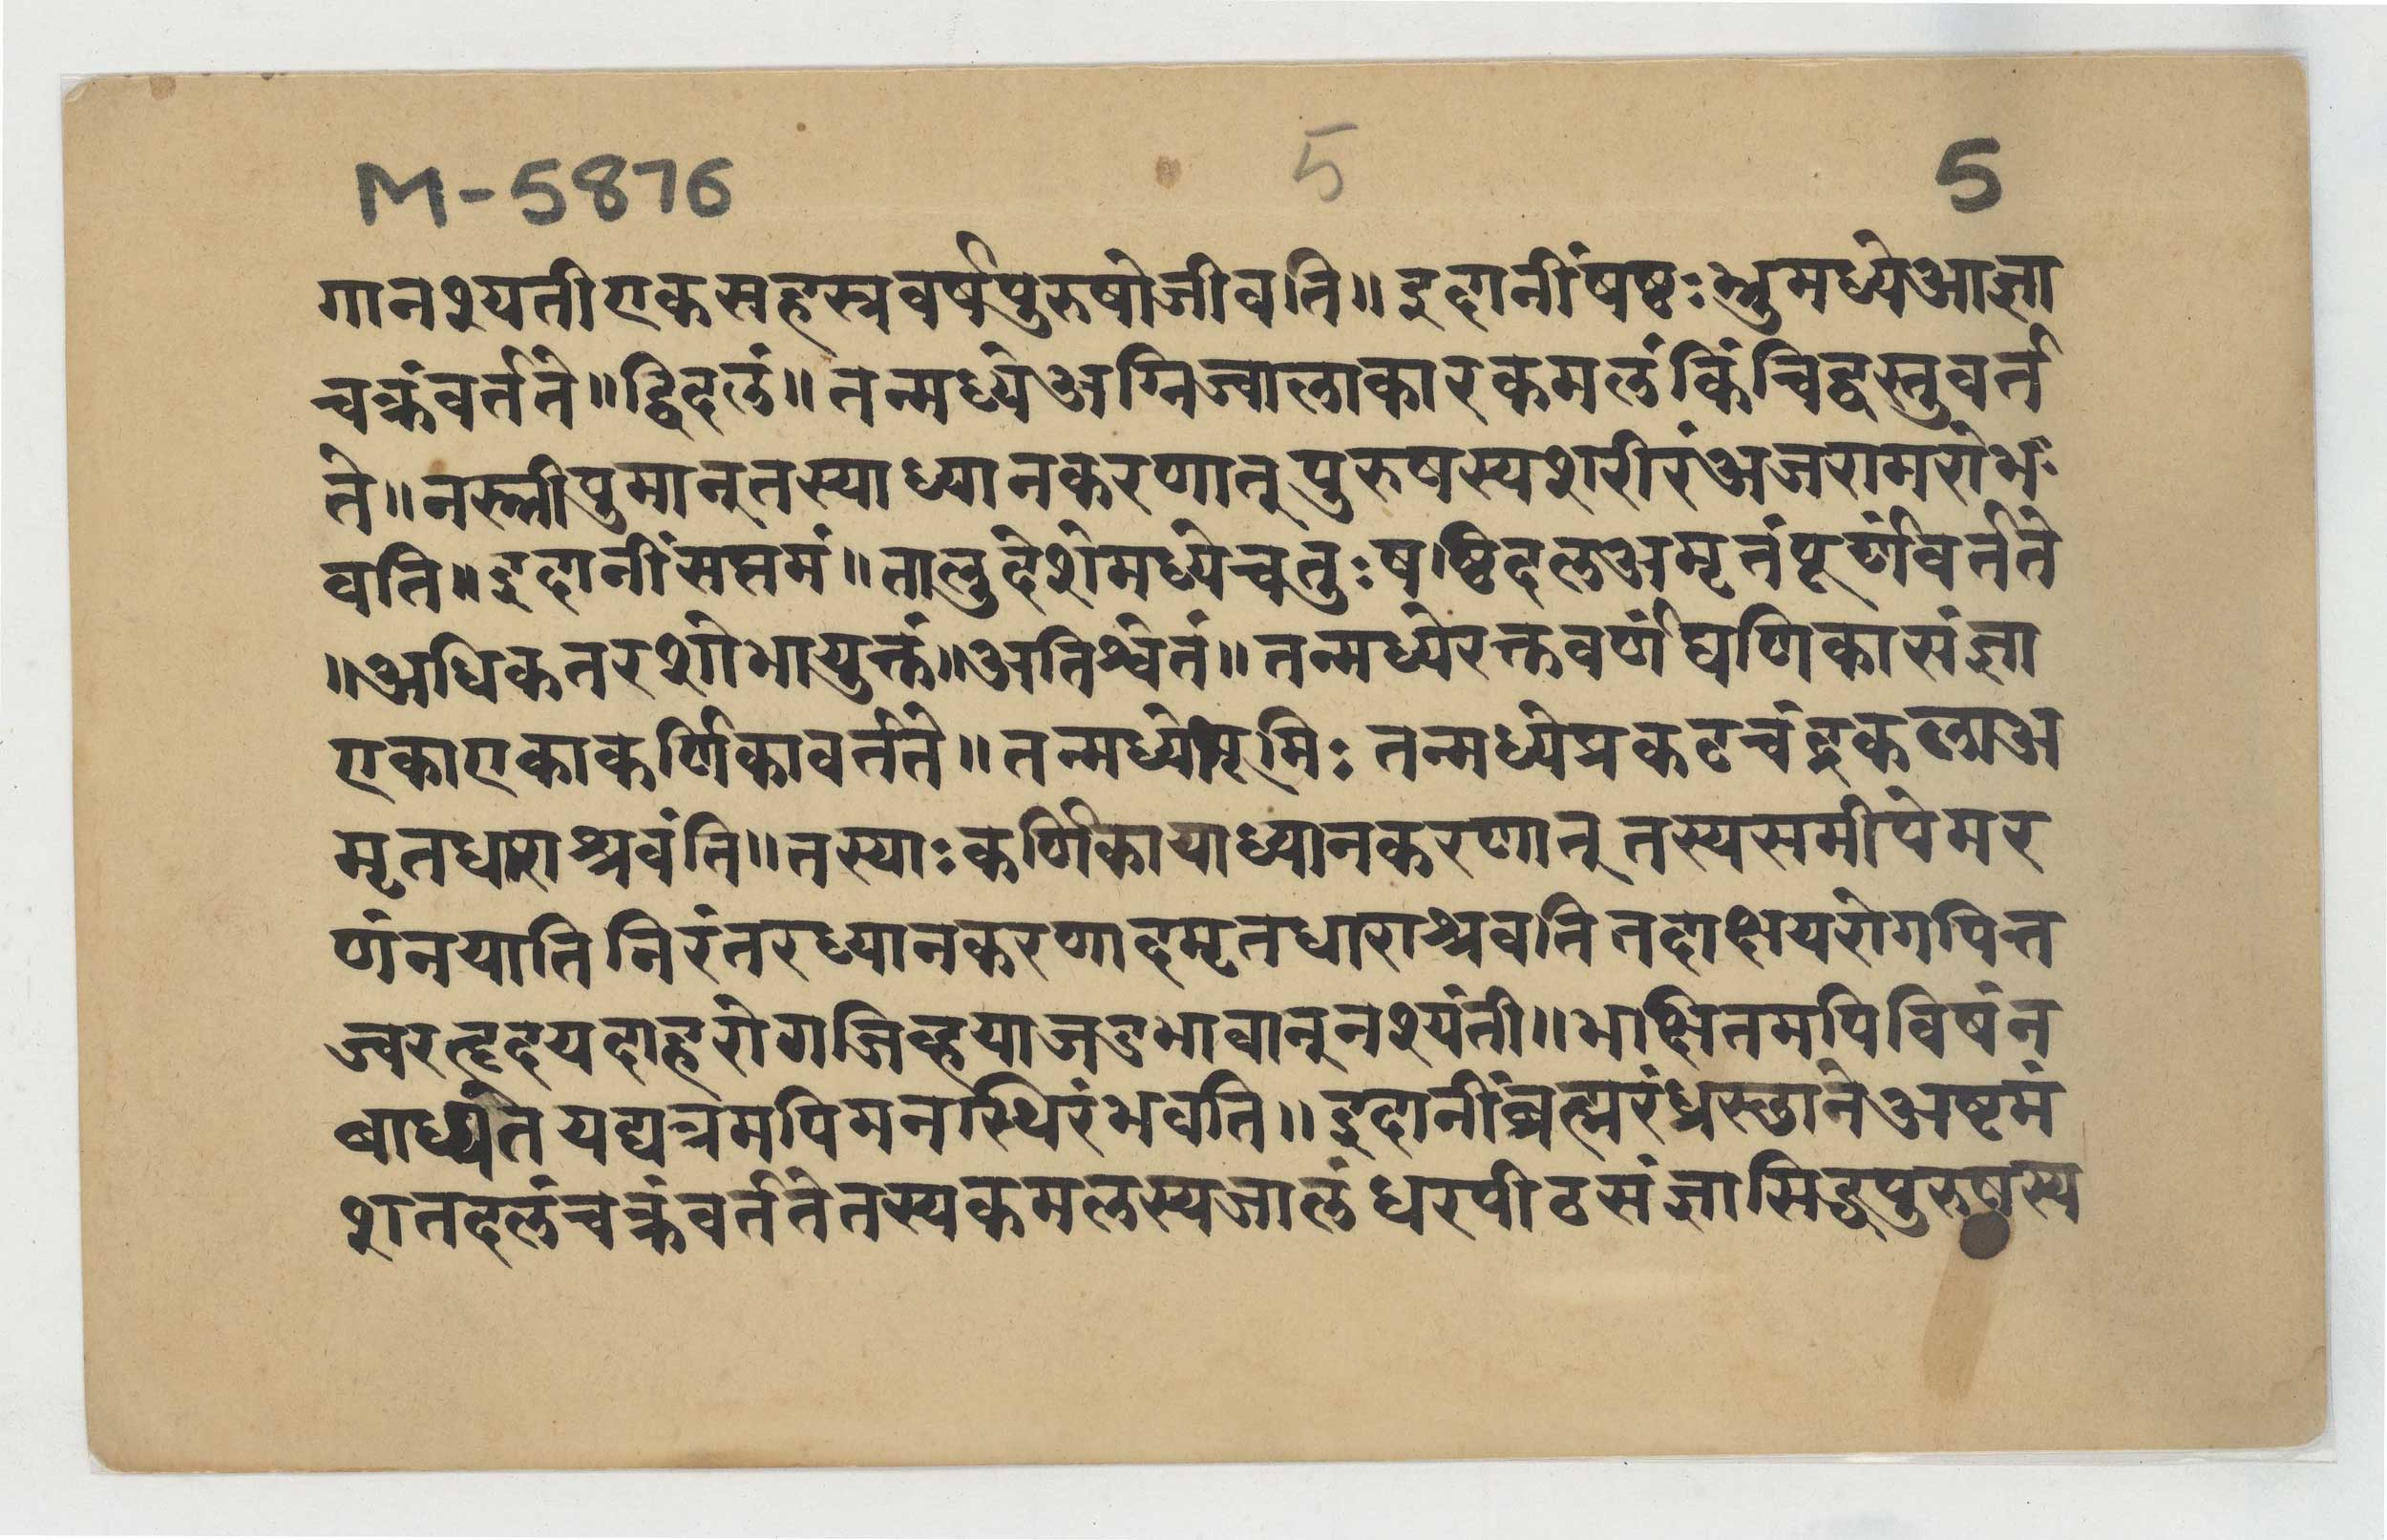 M-5876 5 5
गानश्यती एकसहस्रवर्षपुरुषोजीवति॥ इदानींषष्ठः भ्रुमध्येआज्ञा
चक्रंवर्तते॥द्विदलं॥तन्मध्येअग्निज्वालाकारकमलंकिंचिद्वस्तुवर्त
ते॥नस्त्रीपुमान्तस्याध्यानकरणात्पुरुषस्यशरीरंअजरामरोभ
वति॥इदानींसप्तमं॥तालुदेशेमध्येचतुःषष्टिदलअमृतंपूर्णंवर्तते
॥अधिकतरशोभायुक्तं॥अतिश्वेतं॥तन्मध्येरक्तवर्णंघणिकासंज्ञा
एकाएकाकर्णिकावर्तते॥तन्मध्येभूमिः तन्मध्येप्रकटचंद्रकलाअ
मृतधाराश्रवंति॥तस्याःकर्णिकायाध्यानकरणात् तस्यसमीपेमर
णंनयाति निरंतरध्यानकरणादमृतधाराश्रवति तदाक्षयरोगपित्त
ज्वरहृदयदाहरोगजिव्हयाजडभावान्नश्यंती॥भाक्षितमपिविषंन
बाध्यंते यद्यत्रमपिमनस्थिरंभवति॥इदानींब्रह्मरंध्रस्छानेअष्टमं
शतदलंचक्रंवर्ततेतस्यकमलस्यजालंधरपीठसंज्ञासिद्धपुरुषस्य